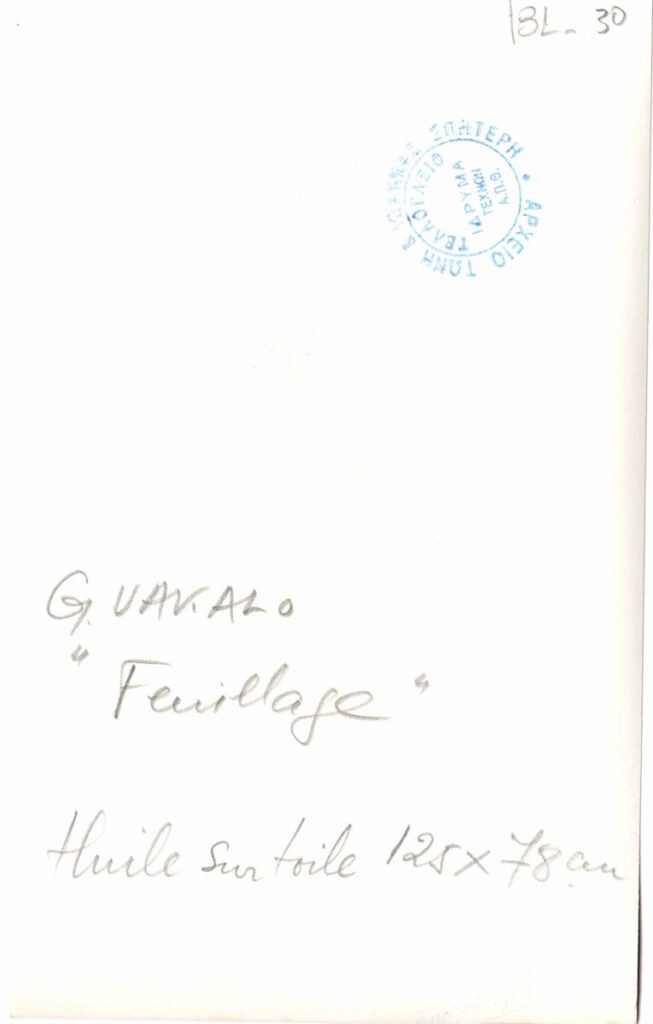 BL- 30
ΑΡΧΕΙΟ ΤΩΝΗ & ΙΩΑΝΝΑΣ ΣΠΗΤΕΡΗ •
ΤΕΛΛΟΓΛΕΙΟ
ΙΔΡΥΜΑ
ΤΕΧΝΩΝ
Α.Π.Θ.
G. VAKALO
"Feuillage"
Huile sur toile 125 x 78 cm